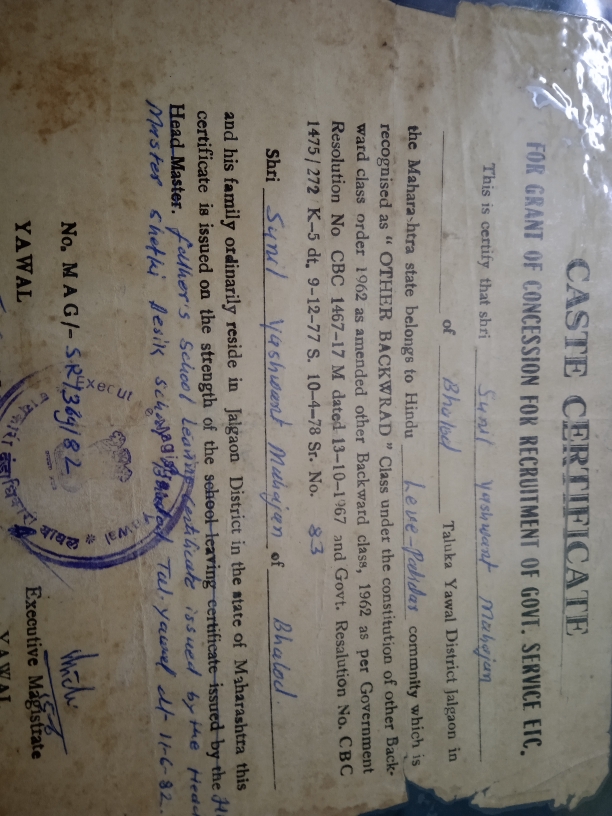 CASTE CERTIFICATE
FOR GRANT OF CONCESSION FOR RECRUITMENT OF GOVT. SERVICE ETC.
This is certify that shri Sunil Yashwant Mahajan
of Bhalod Taluka Yawal District Jalgaon in
the Mahara-htra state belongs to Hindu Leve-Patidar commnity which is
recognised as " OTHER BACKWRAD " Class under the constitution of other Back-
ward class order 1962 as amended other Backward class, 1962 as per Government
Resolution No CBC 1467-17 M dated 13-10-1967 and Govt. Resalution No. CBC
1475/272 K-5 dt. 9-12-77 S. 10-4-78 Sr. No. 83
Shri Sunil Yashwant Mahajan of Bhalod.
and his family ordinarily reside in Jalgaon District in the state of Maharashtra this
certificate is issued on the strength of the school leaving certificate issued by the
Head Master. father's School Leaving Certificate issued by the Head
Master Shethi School Tal. Yawal dt- 11-6-82.
No. MAG/-SR/369/82
YAWAL
Executive Magistrate
YAWAL